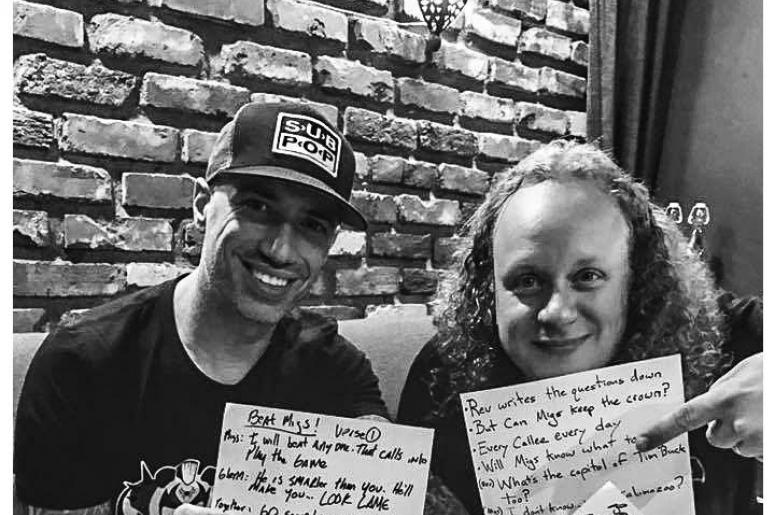 SUB
POP
Beat Migs!
Verse ①
Migs: I will beat any one. That calls into
Play the Game
Gloria: He is smarter than you. He'll
make you... LOOK LAME
Together: 60
• Rev writes the questions down
• But Can Migs keep the crown?
• Every Caller every day
• Will Migs know what to
What's the capitol of Tim Buck
too?
I don't know